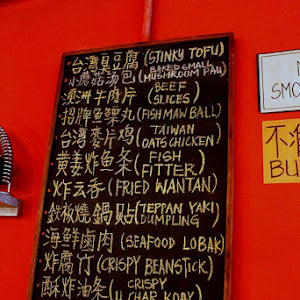 台湾臭豆腐 (STINKY TOFU)
小蘑菇汤包 (BAKED SMALL MUSHROOM PAU)
澳洲牛肉片 (BEEF SLICES)
招牌鱼鰾丸 (FISH MAW BALL)
台湾麥片鸡 (TAIWAN OATS CHICKEN)
黄姜炸鱼条 (FISH FITTER)
炸云吞 (FRIED WANTAN)
鉄板燒鍋貼 (TEPPAN YAKI DUMPLING)
海鮮鹵肉 (SEAFOOD LOBAK)
炸腐竹 (CRISPY BEANSTICK)
酥炸油条 (CRISPY U CHAR KOAY)
SMO
不准
BU